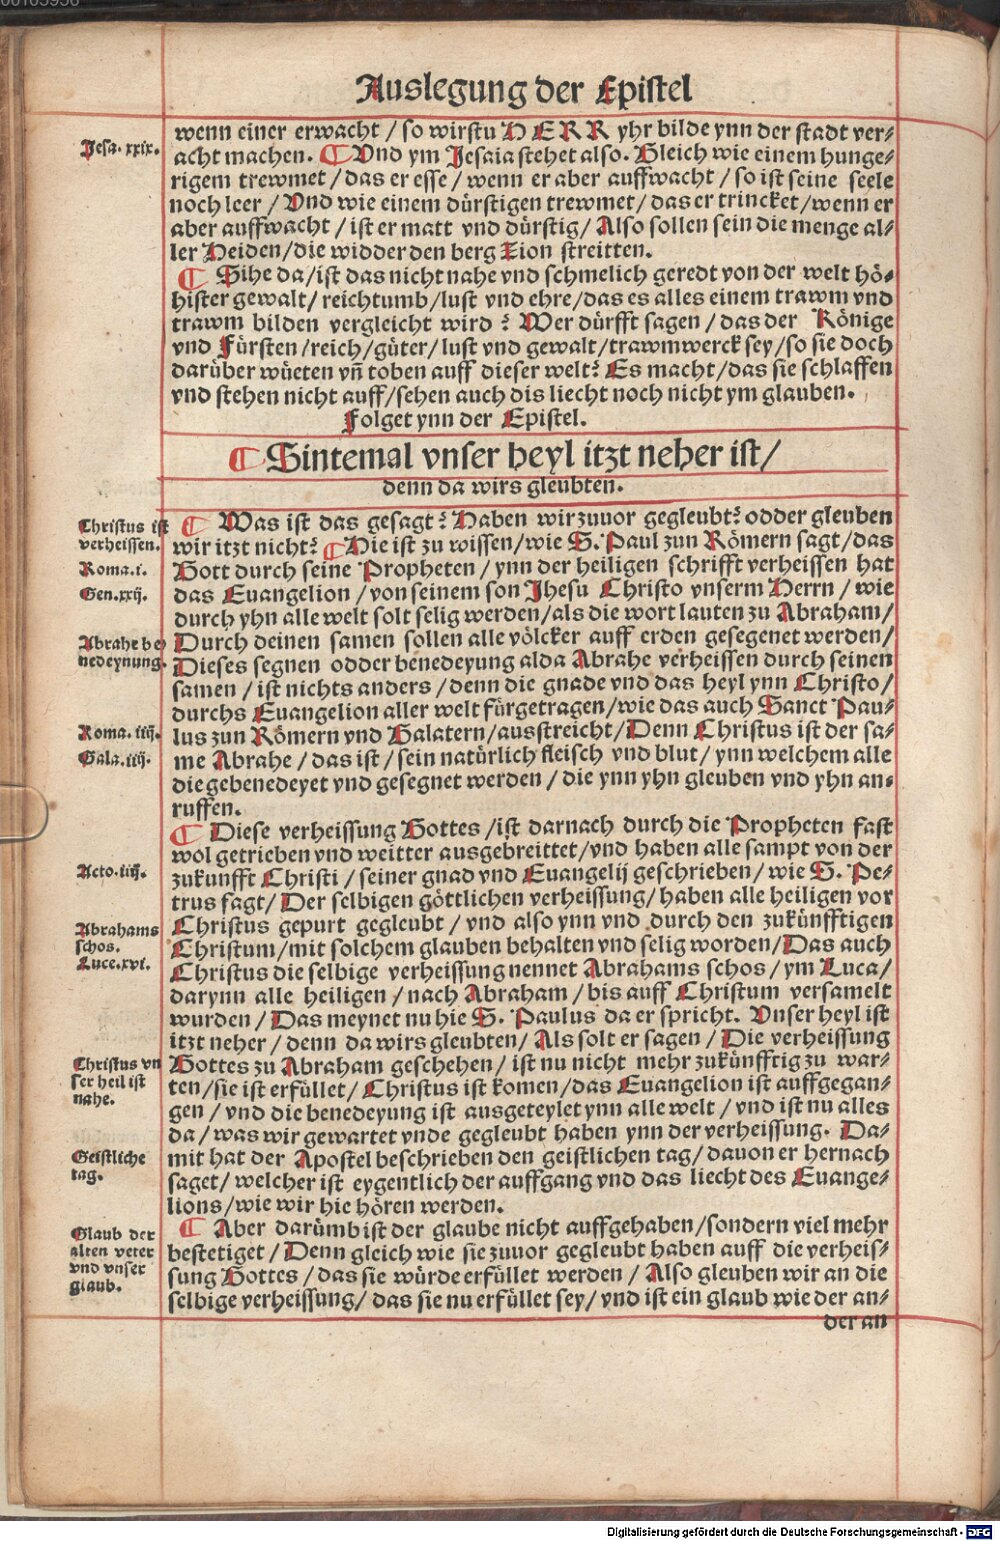 Auslegung der Epistel
wenn einer erwacht / so wirstu HERR yhr bilde ynn der stadt ver⸗
Jesa. xxix.
acht machen. ¶ Vnd ym Jesaia stehet also. Gleich wie einem hunge⸗
rigem trewmet / das er esse / wenn er aber auffwacht / so ist seine seele
noch leer / Vnd wie einem dürstigen trewmet / das er trincket / wenn er
aber auffwacht / ist er matt vnd dürstig / Also sollen sein die menge al⸗
ler Heiden / die widder den berg Zion streitten.
¶ Sihe da / ist das nicht nahe vnd schmelich geredt von der welt hö⸗
hister gewalt / reichtumb / lust vnd ehre / das es alles einem trawm vnd
trawm bilden vergleicht wird? Wer dürfft sagen / das der Könige
vnd Fürsten / reich / güter / lust vnd gewalt / trawmwerck sey / so sie doch
darüber wüeten vñ toben auff dieser welt? Es macht / das sie schlaffen
vnd stehen nicht auff / sehen auch dis liecht noch nicht ym glauben.
Folget ynn der Epistel.
¶ Sintemal vnser heyl itzt neher ist /
denn da wirs gleubten.
Christus ist
verheissen.
Roma. i.
Gen. xxij.
¶ Was ist das gesagt? Haben wir zuuor gegleubt? odder gleuben
wir itzt nicht? ¶ Hie ist zu wissen / wie S. Paul zun Römern sagt / das
Gott durch seine Propheten / ynn der heiligen schrifft verheissen hat
das Euangelion / von seinem son Jhesu Christo vnserm Herrn / wie
durch yhn alle welt solt selig werden / als die wort lauten zu Abraham /
Abrahe be
nedeynung.
Durch deinen samen sollen alle völcker auff erden gesegenet werden /
Dieses segnen odder benedeyung alda Abrahe verheissen durch seinen
samen / ist nichts anders / denn die gnade vnd das heyl ynn Christo /
durchs Euangelion aller welt fürgetragen / wie das auch Sanct Pau⸗
Roma. iiij.
Gala. iij.
lus zun Römern vnd Galatern / ausstreicht / Denn Christus ist der sa⸗
me Abrahe / das ist / sein natürlich fleisch vnd blut / ynn welchem alle
die gebenedeyet vnd gesegnet werden / die ynn yhn gleuben vnd yhn an⸗
ruffen.
¶ Diese verheissung Gottes / ist darnach durch die Propheten fast
wol getrieben vnd weitter ausgebreittet / vnd haben alle sampt von der
Acto. iiij.
zukunfft Christi / seiner gnad vnd Euangelij geschrieben / wie S. Pe⸗
trus sagt / Der selbigen göttlichen verheissung / haben alle heiligen vor
Abrahams
schos.
Luce. xvi.
Christus gepurt gegleubt / vnd also ynn vnd durch den zukünfftigen
Christum / mit solchem glauben behalten vnd selig worden / Das auch
Christus die selbige verheissung nennet Abrahams schos / ym Luca /
darynn alle heiligen / nach Abraham / bis auff Christum versamelt
wurden / Das meynet nu hie S. Paulus da er spricht. Vnser heyl ist
itzt neher / denn da wirs gleubten / Als solt er sagen / Die verheissung
Christus vn
ser heil ist
nahe.
Gottes zu Abraham geschehen / ist nu nicht mehr zukünfftig zu war⸗
ten / sie ist erfüllet / Christus ist komen / das Euangelion ist auffgegan⸗
gen / vnd die benedeyung ist ausgeteylet ynn alle welt / vnd ist nu alles
da / was wir gewartet vnde gegleubt haben ynn der verheissung. Da⸗
Geistliche
tag.
mit hat der Apostel beschrieben den geistlichen tag / dauon er hernach
saget / welcher ist eygentlich der auffgang vnd das liecht des Euange⸗
lions / wie wir hie hören werden.
Glaub der
alten veter
vnd vnser
glaub.
¶ Aber darümb ist der glaube nicht auffgehaben / sondern viel mehr
bestetiget / Denn gleich wie sie zuuor gegleubt haben auff die verheis⸗
sung Gottes / das sie würde erfüllet werden / Also gleuben wir an die
selbige verheissung / das sie nu erfüllet sey / vnd ist ein glaub wie der an⸗
der an
Digitalisierung gefördert durch die Deutsche Forschungsgemeinschaft - DFG